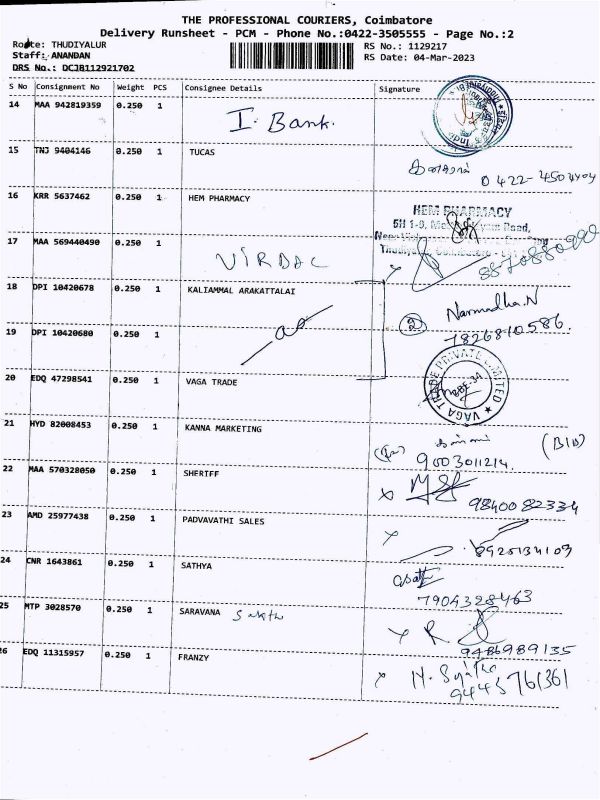 THE PROFESSIONAL COURIERS, Coimbatore
Delivery Runsheet - PCM - Phone No.:0422-3505555 - Page No.:2
Route: THUDIYALUR RS No.: 1129217
Staff: ANANDAN RS Date: 04-Mar-2023
DRS No.: DCJB112921702
S No Consignment No Weight PCS Consignee Details Signature
14 MAA 942819359 0.250 1 I. Bank.
15 TNJ 9404146 0.250 1 TUCAS
0422-4504404
16 KRR 5637462 0.250 1 HEM PHARMACY
HEM PHARMACY
17 MAA 569440490 0.250 1 VIRDAC
18 DPI 10420678 0.250 1 KALIAMMAL ARAKATTALAI
2 Narmadha.N
7826810586.
19 DPI 10420680 0.250 1
20 EDQ 47298541 0.250 1 VAGA TRADE
VAGA TRADE PRIVATE LIMITED
21 HYD 82008453 0.250 1 KANNA MARKETING
9003011214.
22 MAA 570328050 0.250 1 SHERIFF
9840082334
23 AMD 25977438 0.250 1 PADVAVATHI SALES
24 CNR 1643861 0.250 1 SATHYA
7904328463
25 MTP 3028570 0.250 1 SARAVANA
9486989135
26 EDQ 11315957 0.250 1 FRANZY
9445761361